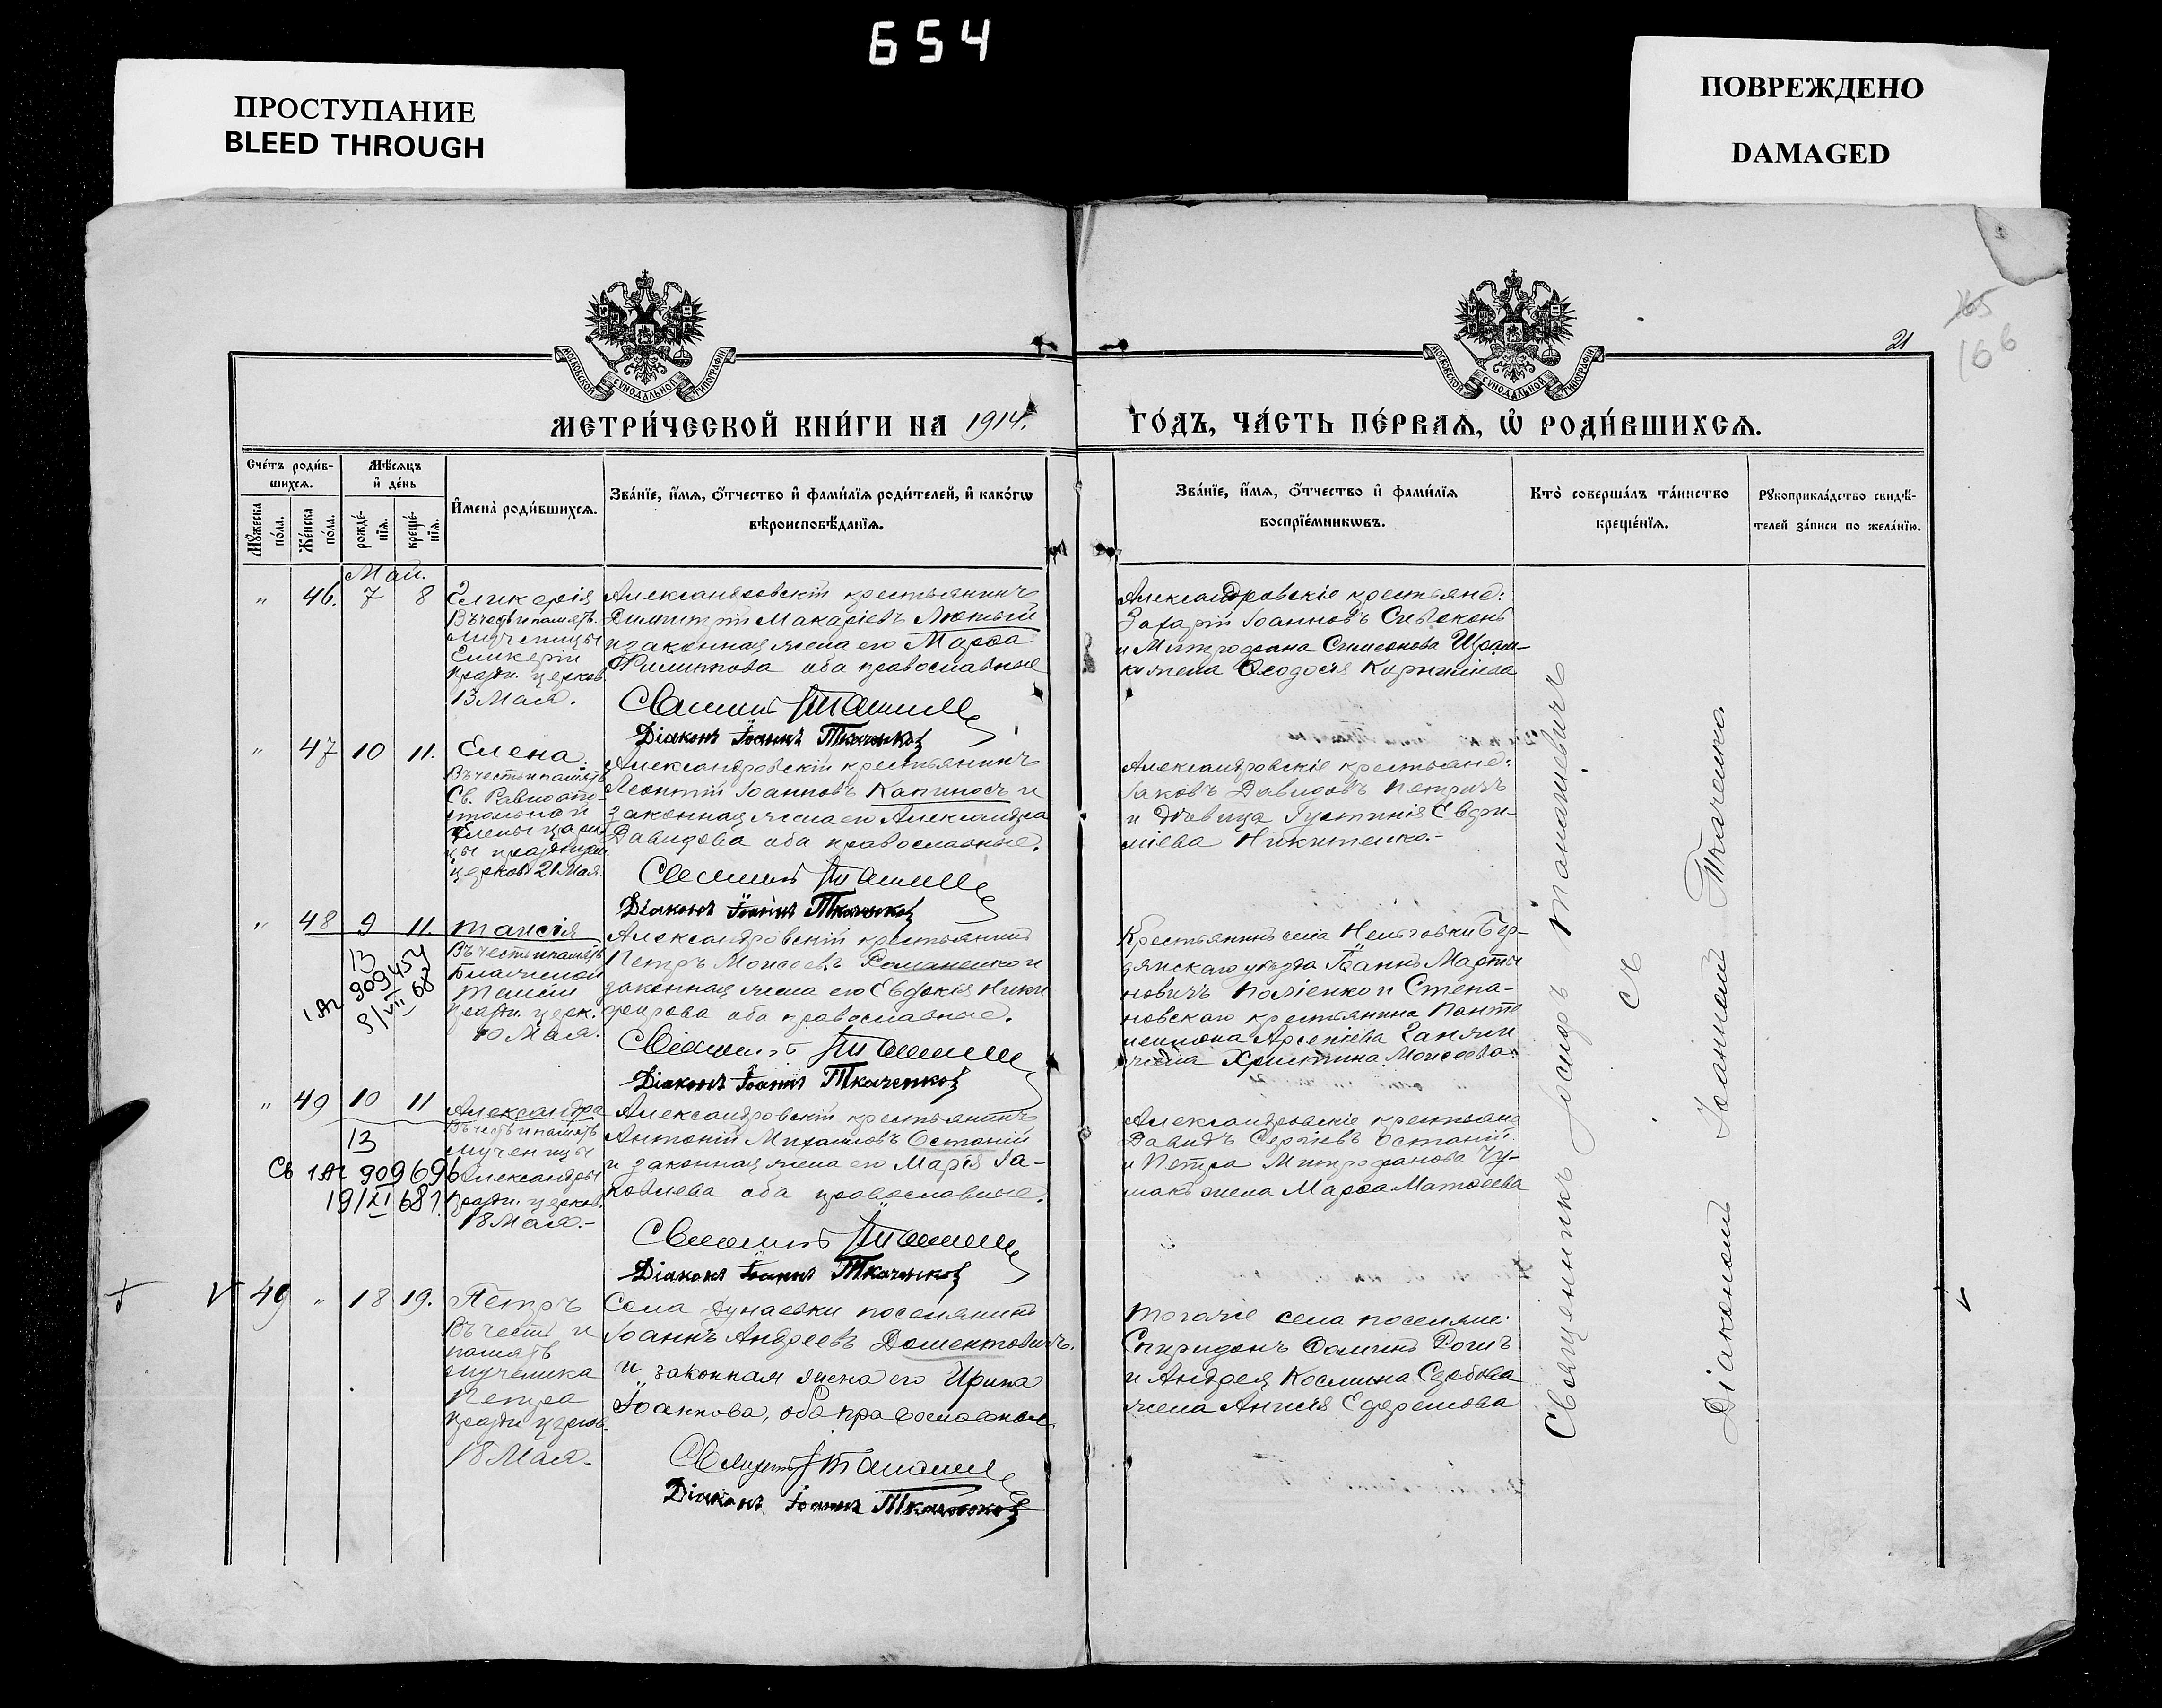 654
ПРОСТУПАНИЕ
BLEED THROUGH
ПОВРЕЖДЕНО
DAMAGED
165
166
21
МОСКОВСКОЙ СѴНОДАЛЬНОЙ ТИПОГРАФІИ
МОСКОВСКОЙ СѴНОДАЛЬНОЙ ТИПОГРАФІИ
МЕТРИ́ЧЕСКОЙ КНИ́ГИ НА 1914.
ГО́ДЪ, ЧА́СТЬ ПЕ́РВАѦ, Ѡ҆ РОДИ́ВШИХСѦ.
Сче́тъ роди́в-
шихсѧ.
Мꙋ́жеска по́ла.
Же́нска по́ла.
Мѣ́сѧцъ
и҆ де́нь
рожде́-нїѧ.
креще́-нїѧ.
И҆мена̀ роди́вшихсѧ.
Зва́нїе, и҆́мѧ, ѻ҆́тчество и҆ фами́лїѧ роди́телей, и҆ како́гѡ
вѣроисповѣ́данїѧ.
Зва́нїе, и҆́мѧ, ѻ҆́тчество и҆ фами́лїѧ
воспрїе́мникѡвъ.
Кто̀ соверша́лъ та́инство
креще́нїѧ.
Рꙋкоприкла́дство свидѣ́-
телей за́писи по жела́нїю.
Май.
" 46. 7 8
Гликерія
Въ честь и память
мученицы
Гликеріи
праздн. церков.
13 Мая.
Александровскій крестьянинъ
Димитрій Макаріевъ Лютый
и законная жена его Марѳа
Филиппова оба православные
Діаконъ Іоаннъ Ткаченко
Александровскіе крестьяне:
Захарій Іоанновъ
и Митрофана Симеонова
жена Ѳеодосія
" 47 10 11.
Елена.
Въ честь и память
Св. Равноапо-
стольной
Елены цари-
цы празднуем.
церков. 21 Мая.
Александровскій крестьянинъ
Леонтій Іоанновъ Капиносъ и
законная жена его Александра
Давидова оба православные.
Діаконъ Іоаннъ Ткаченко
Александровскіе крестьяне:
Іаковъ Давидовъ Петричъ
и дѣвица Іустинія Евфи-
міева Никитенко.-
" 48 9 11.
13
1 АП 909454
9/VII 68
Таисія
Въ честь и память
блаженной
Таисіи
праздн. церк.
10 Мая.
Александровскій крестьянинъ
Петръ Моисеевъ Романенко и
законная жена его Евдокія Ники-
форова оба православные.
Діаконъ Іоаннъ Ткаченко
Крестьянинъ села Нельговки Бер-
дянскаго уѣзда Іоаннъ Марты-
новичъ и Степа-
новскаго крестьянина Панте-
леимона Арсеніева
жена Христина Моисеева.
" 49 10 11
13
Св 1 АП 909696
19/XI 681.
Александра
Въ честь и память
мученицы
Александры
праздн. церков.
18 Мая.-
Александровскій крестьянинъ
Антоній Михаиловъ Остапій
и законная жена его Марія Іа-
ковлева оба православные.
Діаконъ Іоаннъ Ткаченко
Александровскіе крестьяне
Давидъ Сергіевъ Остапій
и Петра Митрофанова Чу-
макъ жена Марѳа Матѳеева
+ V 49 " 18 19.
Петръ
Въ честь и
память
мученика
Петра
праздн. церков.
18 Мая.
Села Дунаевки поселянинъ
Іоаннъ Андреевъ Доментовичъ.
и законная жена его Ирина
Іоаннова, оба православные
Діаконъ Іоаннъ Ткаченко
Того же села поселяне:
Спиридонъ Ѳоминъ
и Андрея Космина
жена Анисія Ефремова
Священникъ Іосифъ Томашевичъ
съ
Діакономъ Іоанномъ Ткаченко.